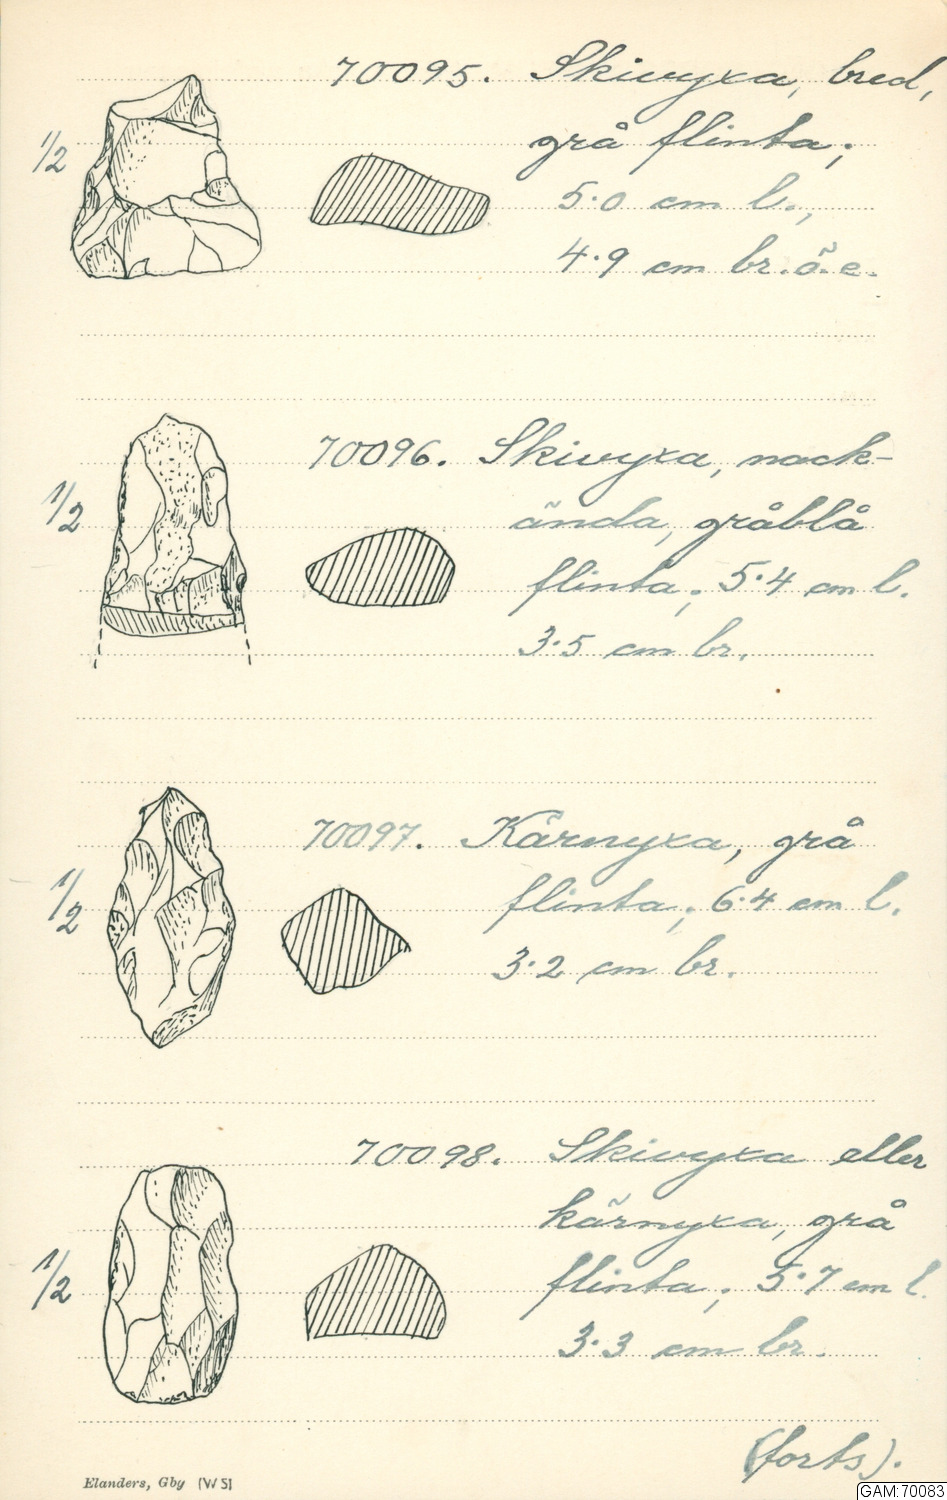 70095. Skivyxa, bred,
1/2
grå flinta;
5.0 cm l.,
4.9 cm br. ö. e.
70096. Skivyxa, nack-
1/2
ända, gråblå
flinta; 5.4 cm l.
3.5 cm br.
70097. Kärnyxa, grå
1/2
flinta; 6.4 cm l.
3.2 cm br.
70098. Skivyxa eller
kärnyxa, grå
1/2
flinta; 5.7 cm l.
3.3 cm br.
(forts).
Elanders, Gby (WS)
GAM:70083